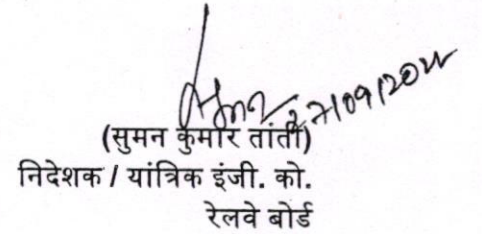 27/09/2022
(सुमन कुमार तांती)
निदेशक / यांत्रिक इंजी. को.
रेलवे बोर्ड